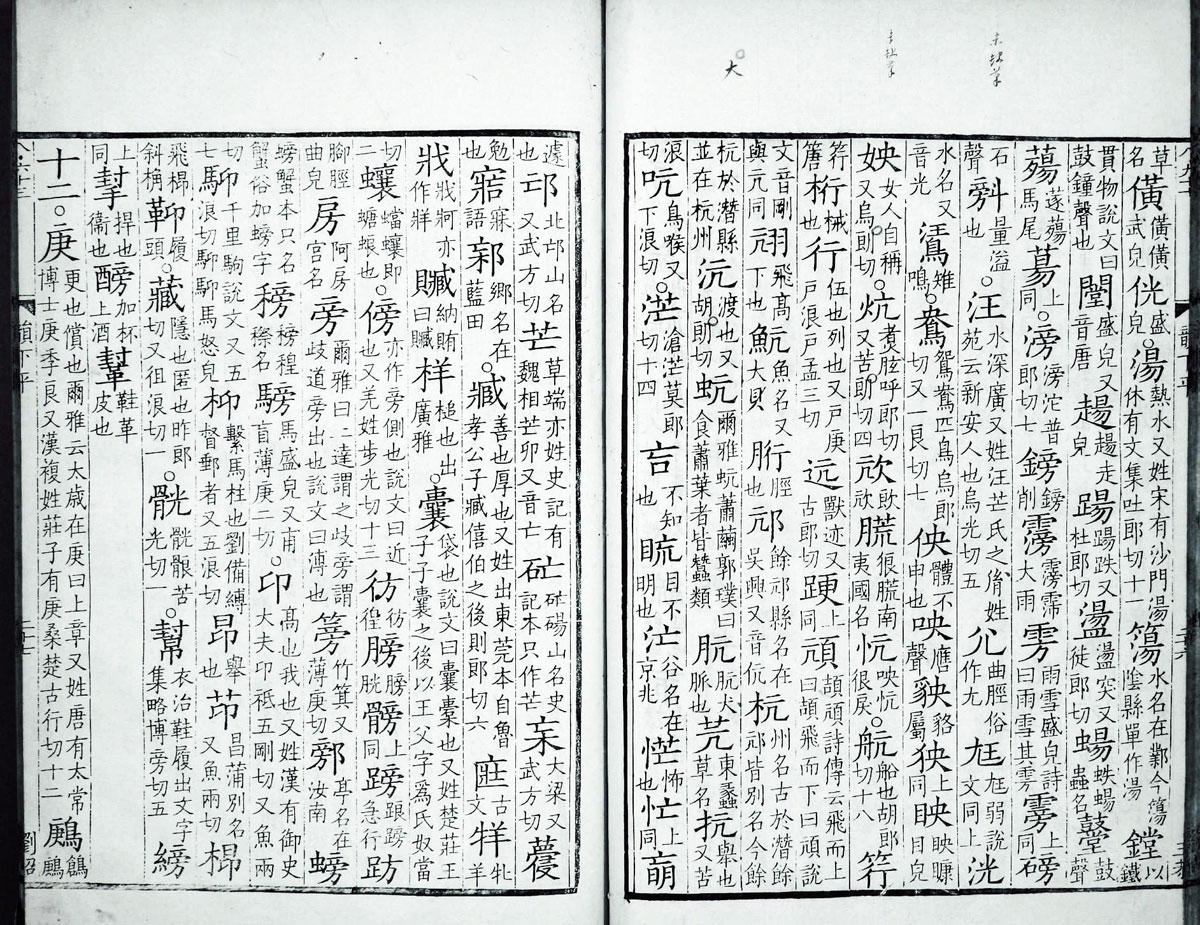 草名僙僙僙武皃侊盛皃○湯熱水又姓宋有沙門湯休有文集吐郎切十一簜水名在鄴今簜陰縣單作湯鏜以鐵
貫物說文曰鼓鐘聲也闛盛皃又音唐趤趤走皃踼踼跌又杜郎切盪盪突又徒郎切蝪蛈蝪蟲名鼞鼓聲
薚蓫薚馬尾蕩上同○滂滂沱普郎切七鎊鎊削霶霶霈大雨雱雨雪盛皃詩曰雨雪其雱雱上同磅
石聲量溢也○汪水深廣又姓汪芒氏之胤姓苑云新安人也烏光切五尣曲脛俗作尢尪尪弱說文同上洸
水名又音光雉鳴○鴦鴛鴦匹鳥烏郎切又一良切七佒體不申也咉應聲貉屬上同眏眏䁳目皃
姎女人自稱又烏朗切○炕煮胘呼郎切又苦朗切四很南夷國名忼咉忼很戾○航船也胡郎切十八笐
笐簹桁械也行伍也列也又戶庚戶浪戶孟三切迒獸迹又古郎切䟘上同頏頡頏詩傳云飛而上曰頡飛而下曰頏說
文音剛與亢同飛高下也魧魚名又大貝胻脛也邟餘邟縣名在吳興又音伉杭州名古於潛餘邟皆別名今餘
杭於潛縣並在杭州沆渡也又胡朗切蚢爾雅蚢蕭繭郭璞曰食蕭葉者皆蠶類肮肮犬脈也苀東蠡草名抗舉也又苦
浪切吭鳥喉又下浪切○茫滄茫莫郎切十四不知也䀮目不明也汒谷名在京兆恾怖也忙上同
遽也邙北邙山名又武方切芒草端亦姓史記有魏相芒卯又音亡硭硭碭山名史記本只作芒杗大梁又武方切蘉
勉也寣寐語鄉名在藍田○臧善也厚也又姓出東莞本自魯孝公子臧僖伯之後則郎切六古文牂牝羊
戕戕牁亦作牂贓納賄曰贓槌也出廣雅○囊袋也說文曰囊橐也又姓楚莊王子子囊之後以王父字爲氏奴當
切二蠰蟷蠰即螗蜋也○傍亦作旁側也說文曰近也又羌姓步光切十三彷彷徨膀膀胱髈上同踉急行
腳脛曲皃房阿房宮名旁爾雅曰二達謂之歧旁謂歧道旁出也說文曰溥也竹箕又薄庚切亭名在汝南螃
螃蟹本只名蟹俗加螃字穄名馬盛皃又甫盲薄庚二切○卬高也我也又姓漢有御史大夫卬祗五剛切又魚兩
切䭹千里駒說文又五浪切馬怒皃枊繫馬柱也劉備縛督郵者又五浪切昂舉也茚昌蒲別名又魚兩切
飛㮰斜桷履頭○藏隱也匿也昨郎切又徂浪切一○骯苦光切一○幫衣治鞋履出文字集略博旁切五
上同捍也衞也加杯上酒鞋革皮也
十二○庚更也償也爾雅云太歲在庚曰上章又姓唐有太常博士庚季良又漢複姓莊子有庚桑楚古行切十二鶊鶬鶊